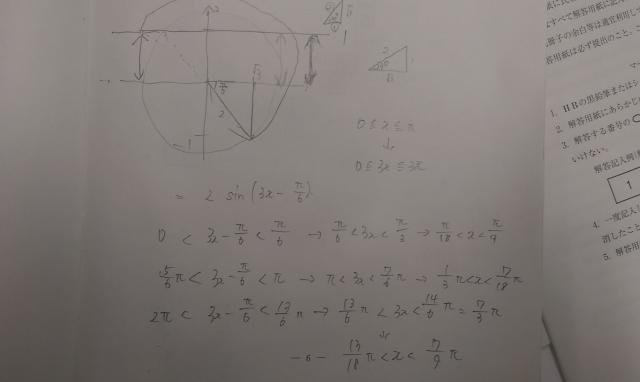 2
√3
1
2
√3
0 ≦ x ≦ π
↓
0 ≦ 3x ≦ 3π
= 2 sin(3x - π/6)
0 < 3x - π/6 < π/6 → π/6 < 3x < π/3 → π/18 < x < π/9
5/6 π < 3x - π/6 < π → π < 3x < 7/6 π → 1/3 π < x < 7/18 π
2π < 3x - π/6 < 13/6 π → 13/6 π < 3x < 14/6 π = 7/3 π
↓
- 6 - 13/18 π < x < 7/9 π
すべて解答用紙に記
冊子の余白等は適宜利用して
答用紙は必ず提出のこと。こ
マー
1. HBの黒鉛筆またはシ
2. 解答用紙にあらかじ
3. 解答する番号の
いけない。
解答記入例(
1
4. 一度記入し
消したこと
5. 解答用